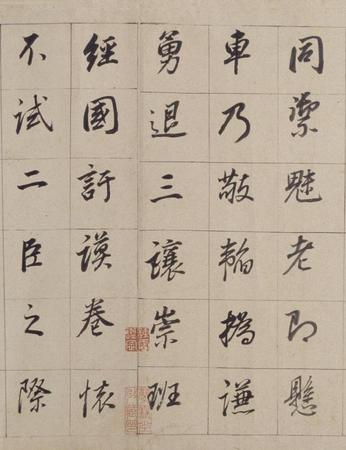 同禦魅老即懸
車乃敬撝謙
勇退三讓崇班
經國訏謨卷懷
不試二臣之際